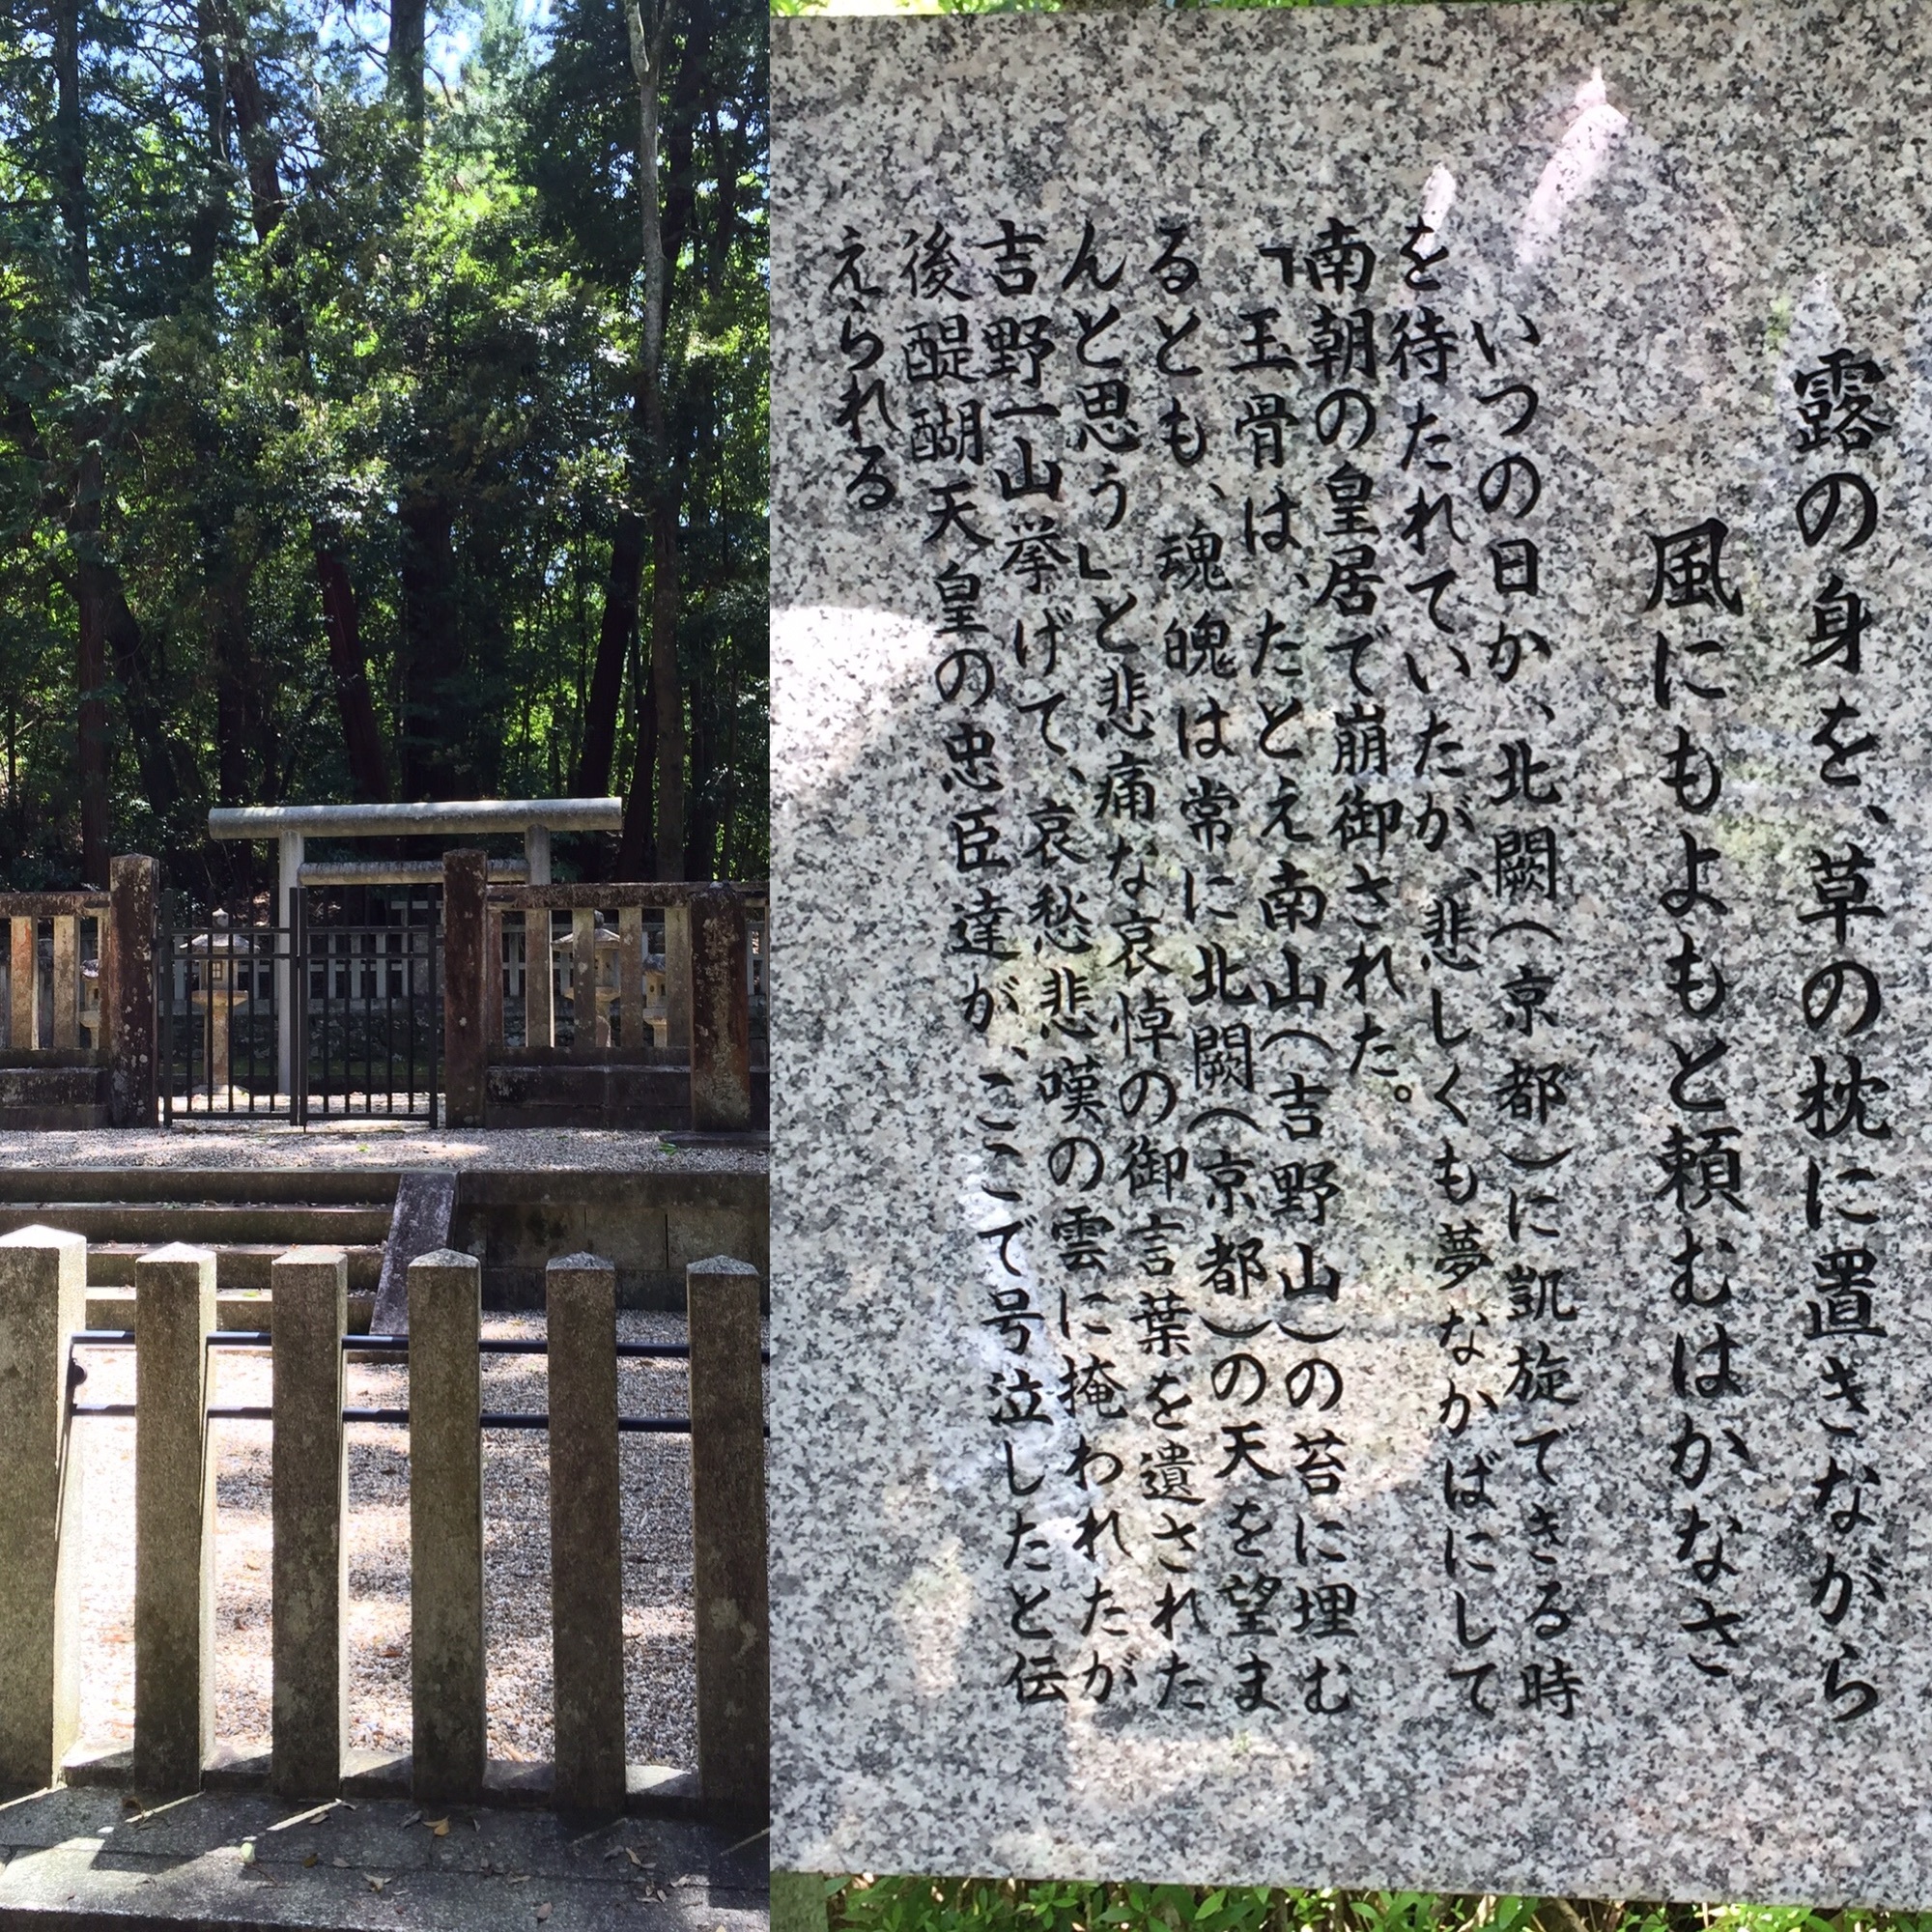 露の身を、草の枕に置きながら
風にもよもと頼むはかなさ
いつの日か、北闕（京都）に凱旋できる時
を待たれていたが、悲しくも夢なかばにして
南朝の皇居で崩御された。
「玉骨は、たとえ南山（吉野山）の苔に埋む
るとも、魂魄は常に北闕（京都）の天を望ま
んと思う」と悲痛な哀悼の御言葉を遺された
吉野一山挙げて、哀愁悲嘆の雲に掩われたが
後醍醐天皇の忠臣達が、ここで号泣したと伝
えられる